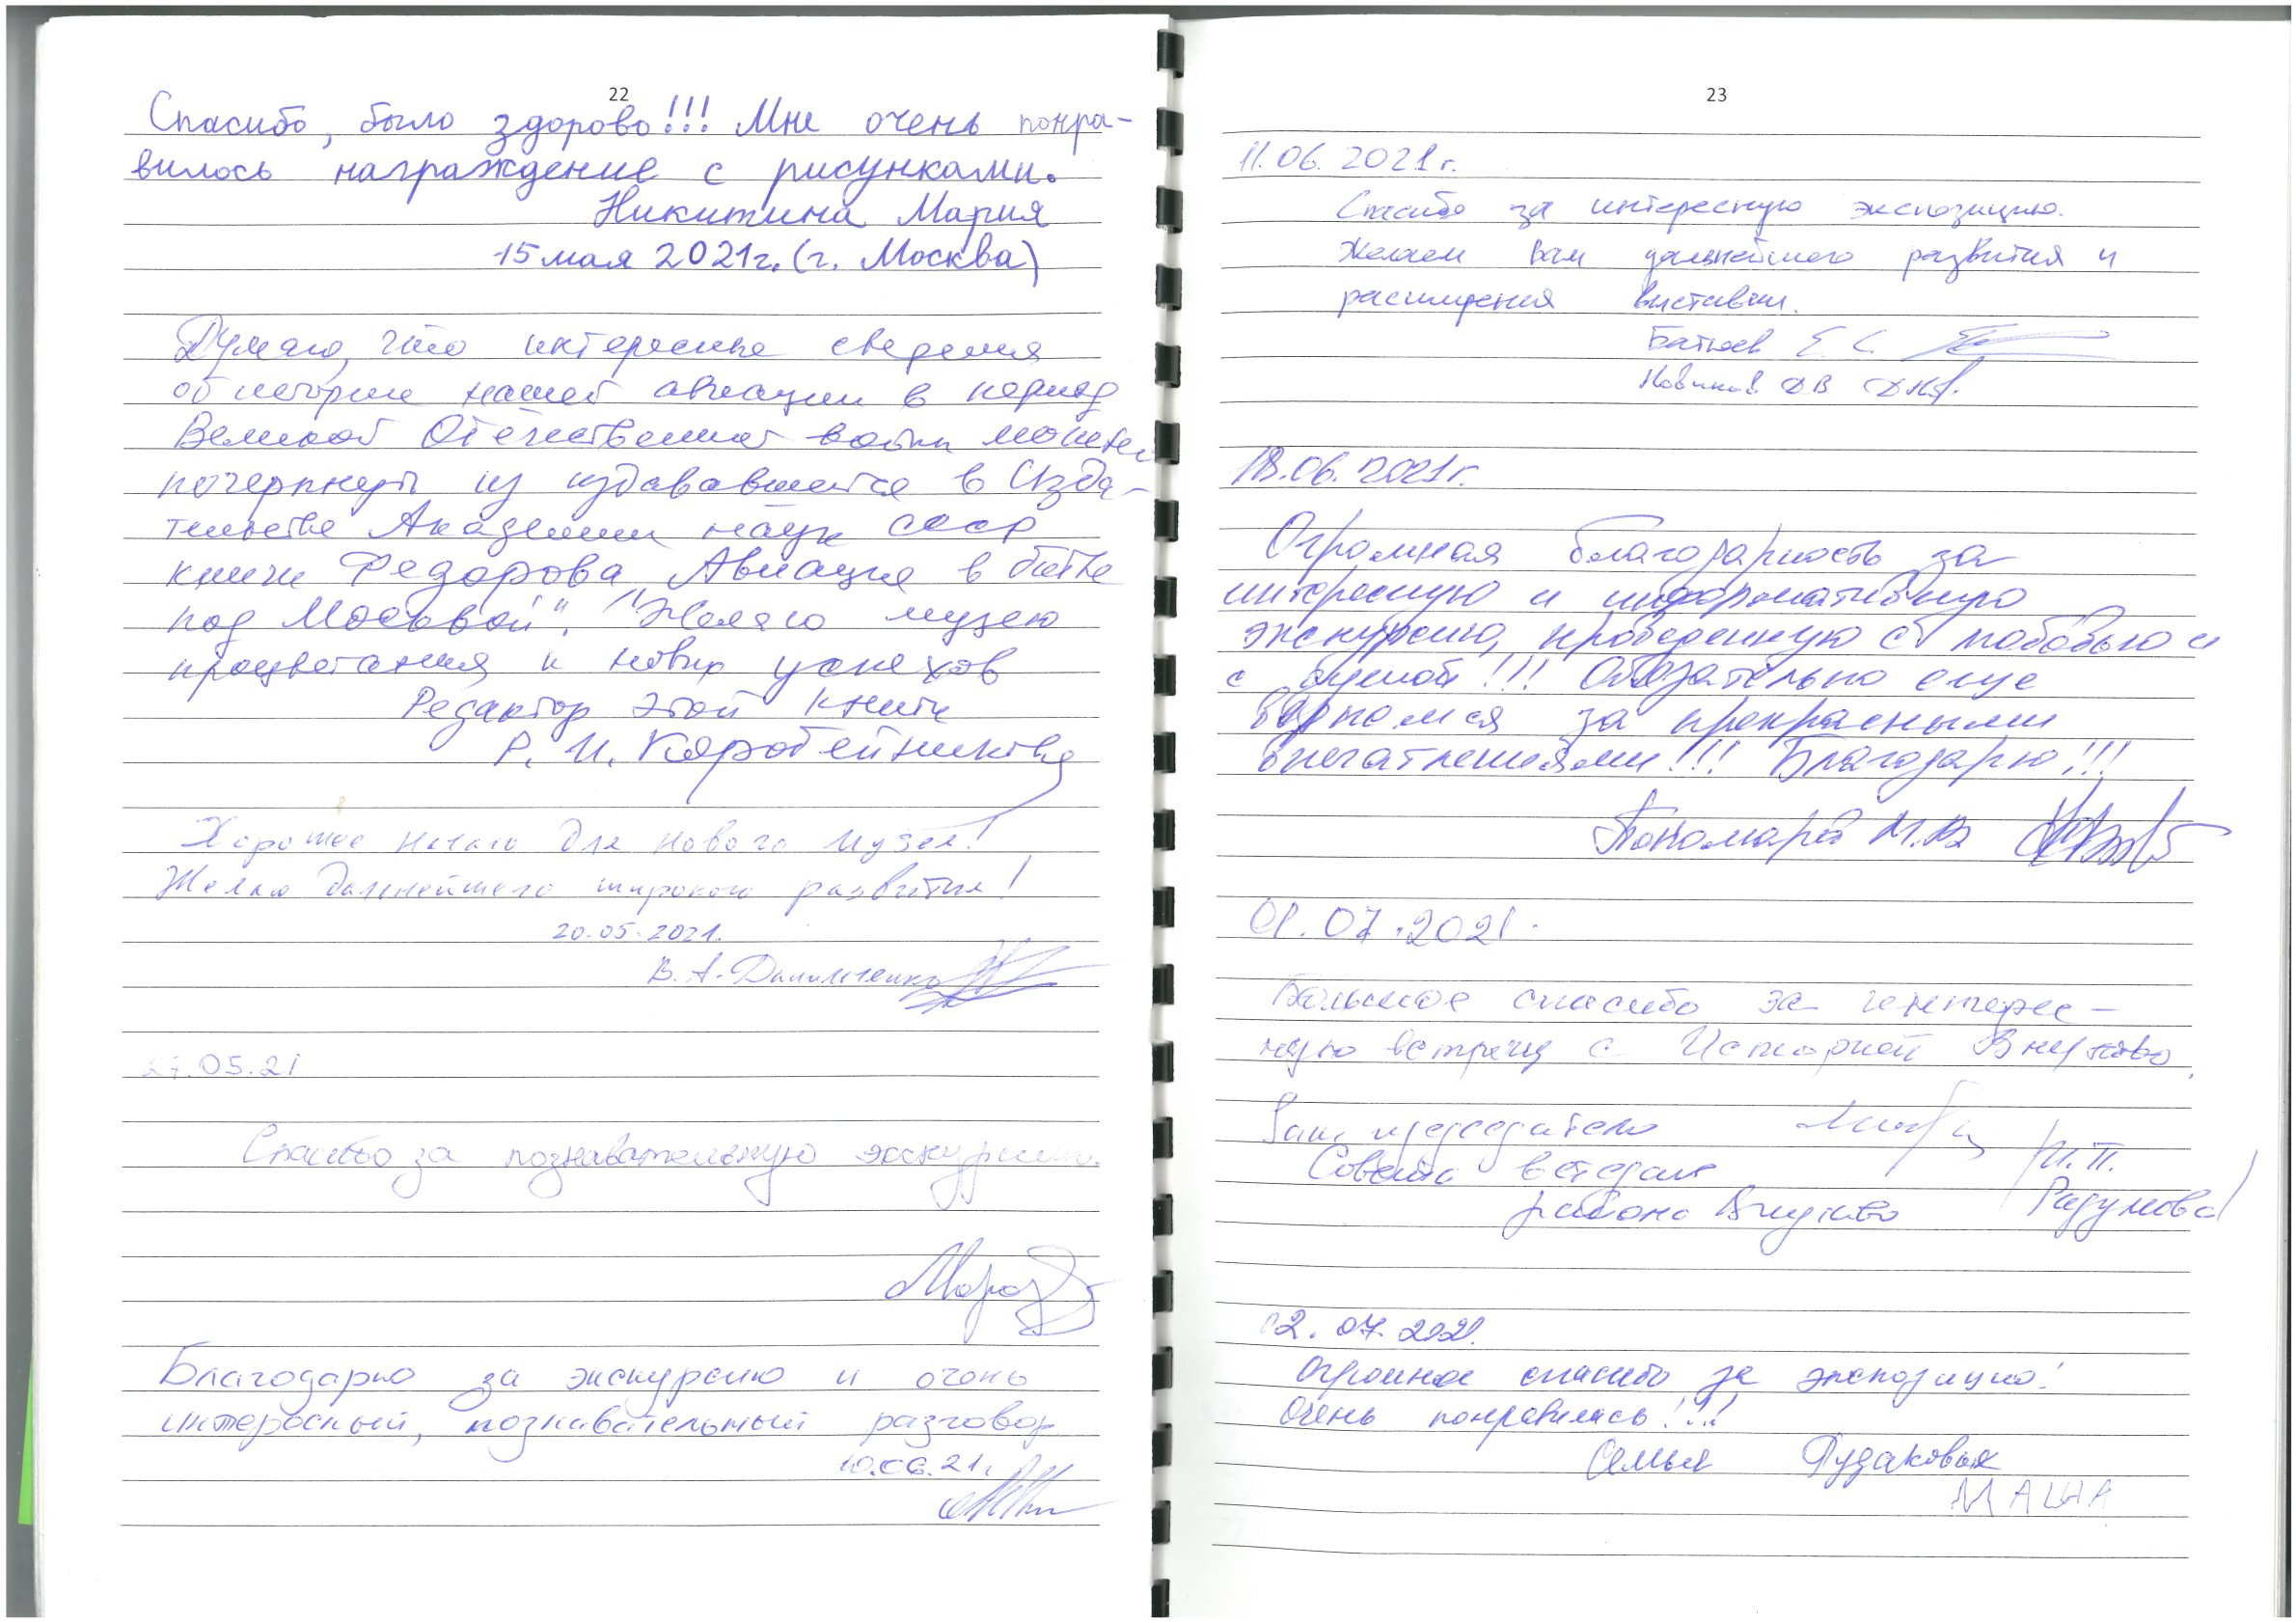 22
Спасибо, было здорово!!! Мне очень понра-
вилось награждение с рисунками.
Никитина Мария
15 мая 2021г. (г. Москва)
Думаю, что интересные сведения
об истории нашей авиации в период
Великой Отечественной войны можете
почерпнуть из издававшейся в Изда-
тельстве Академии наук СССР
книги Федорова "Авиация в битве
под Москвой". Желаю музею
процветания и новых успехов
Редактор этой книги
Р. И. Коробейникова
Хорошее начало для нового музея!
Желаю дальнейшего широкого развития!
20.05.2021.
В. А. Данильченко
27.05.21
Спасибо за познавательную экскурсию.
Мороз
Благодарю за экскурсию и очень
интересный, познавательный разговор
10.06.21.
23
11.06.2021г.
Спасибо за интересную экспозицию.
Желаем Вам дальнейшего развития и
расширения выставки.
Батаев Е. С.
Новиков Д В
18.06.2021г.
Огромная благодарность за
интересную и информативную
экскурсию, проведенную с любовью и
с душой!!! Обязательно еще
вернемся за прекрасными
впечатлениями!!! Благодарю!!!
Пономарёв М.В
01.07.2021.
Большое спасибо за интерес-
ную встречу с Историей Внуково.
Зам. председателя
Совета ветеранов /И. П.
района Внуково Радунова/
02.07.2021.
Огромное спасибо за экспозицию!
Очень понравилась!!!
Семья Рудаковых
МАША